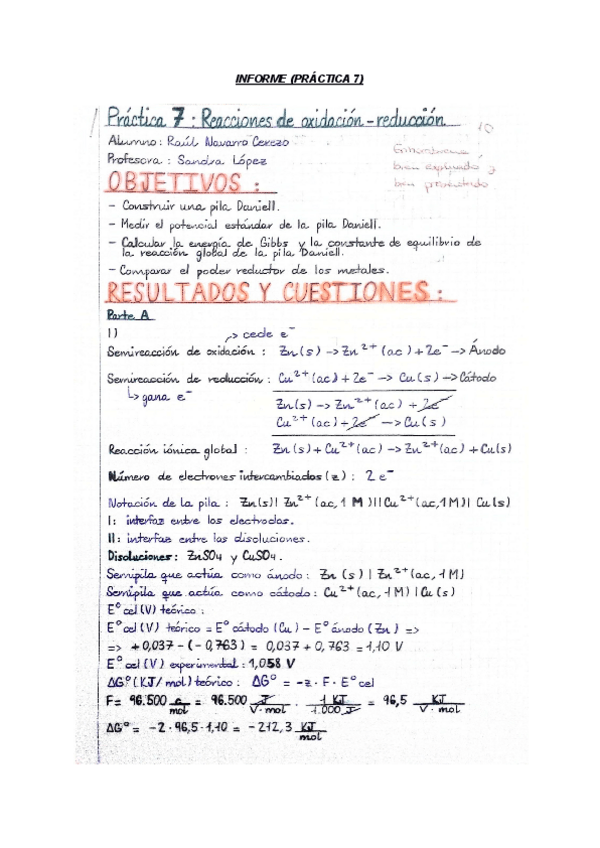 INFORME (PRÁCTICA 7)
Práctica 7 : Reacciones de oxidación-reducción
10
Alumno : Raúl Navarro Cerezo
Profesora : Sandra López
Enhorabuena
bien explicado y
bien presentado
OBJETIVOS :
- Construir una pila Daniell.
- Medir el potencial estándar de la pila Daniell.
- Calcular la energía de Gibbs y la constante de equilibrio de
la reacción global de la pila Daniell.
- Comparar el poder reductor de los metales.
RESULTADOS Y CUESTIONES :
Parte A
1) -> cede e⁻
Semireacción de oxidación : Zn(s) -> Zn²⁺(ac) + 2e⁻ -> Ánodo
Semireacción de reducción : Cu²⁺(ac) + 2e⁻ -> Cu(s) -> Cátodo
-> gana e⁻
Zn(s) -> Zn²⁺(ac) + 2e⁻
Cu²⁺(ac) + 2e⁻ -> Cu(s)
Reacción iónica global : Zn(s) + Cu²⁺(ac) -> Zn²⁺(ac) + Cu(s)
Número de electrones intercambiados (z) : 2 e⁻
Notación de la pila : Zn(s)| Zn²⁺(ac, 1 M)||Cu²⁺(ac, 1M)| Cu(s)
|: interfaz entre los electrodos.
||: interfaz entre las disoluciones.
Disoluciones: ZnSO4 y CuSO4.
Semipila que actúa como ánodo : Zn (s) | Zn²⁺(ac, 1M)
Semipila que actúa como cátodo : Cu²⁺(ac, 1M) | Cu (s)
E° cel (V) teórico :
E° cel (V) teórico = E° cátodo (Cu) - E° ánodo (Zn) =>
=> +0,037 - (-0,763) = 0,037 + 0,763 = 1,10 V
E° cel (V) experimental : 1,058 V
ΔG° (KJ/mol) teórico : ΔG° = -z · F · E° cel
F = 96.500 C/mol = 96.500 J/V·mol · 1 KJ/1.000 J = 96,5 KJ/V·mol
ΔG° = -2 · 96,5 · 1,10 = -212,3 KJ/mol